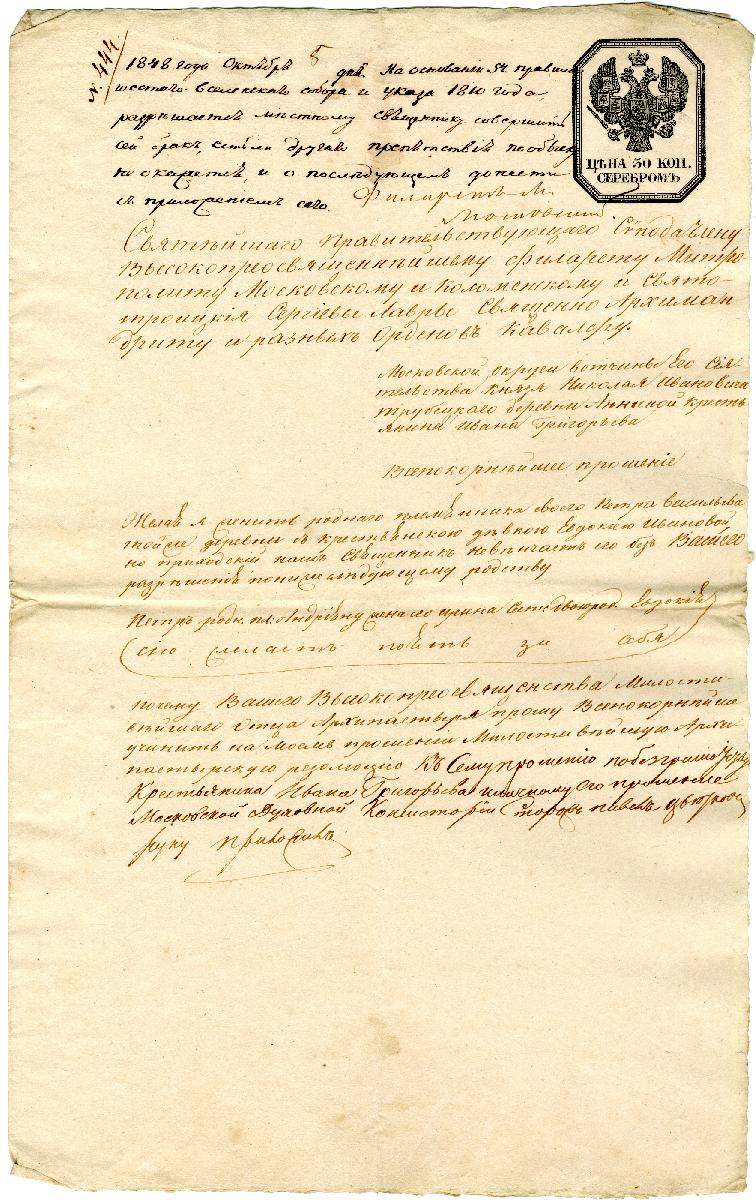 № 444
1848 года Октября 5 дня. На основании 54 правила
шестаго вселенскаго собора и указа 1810 года,
разрѣшается мѣстному священнику совершить
сей бракъ, естьли другаго препятствія по обыску
не окажется, и о послѣдующемъ донести
съ приложеніемъ сего. Филаретъ М.
Московскій
ЦѢНА 30 КОП.
СЕРЕБРОМЪ.
Святѣйшаго Правительствующаго Сѵнода Члену
Высокопреосвященнѣйшему Филарету Митро
политу Московскому и Коломенскому и Свято-
троицкія Сергіевы Лавры Священно Архиман
дриту и разныхъ Орденовъ Кавалеру.
Московской округи вотчины Его Сія
тельства Князя Николая Ивановича
трубецкаго деревни Аниной кресть
янина Ивана Григорьева
Всепокорнѣйшее прошеніе
Желаю я женить роднаго племянника своего Петра Васильева
тойже деревни съ крестьянскою дѣвкою Евдокіею Ивановой
но приходской нашъ Священникъ невѣнчаетъ его безъ Вашего
разрѣшенія понижеслѣдующему родству
Петръ родн. пл. Андріяну жена его Ирина Сест. двоюрод. Евдокіи
сію желаетъ поять за себя
почему Вашего Высокопреосвященства Милости-
вѣйшаго Отца Архипастыря прошу Всепокорнѣйше
учинить на моемъ прошеніи Милостивѣйшую Архи
пастырскую резолюцію Къ Сему прошенію
Крестьянина Ивана Григорьева его прошенію
Московской Духовной Консисторіи
руку приложилъ